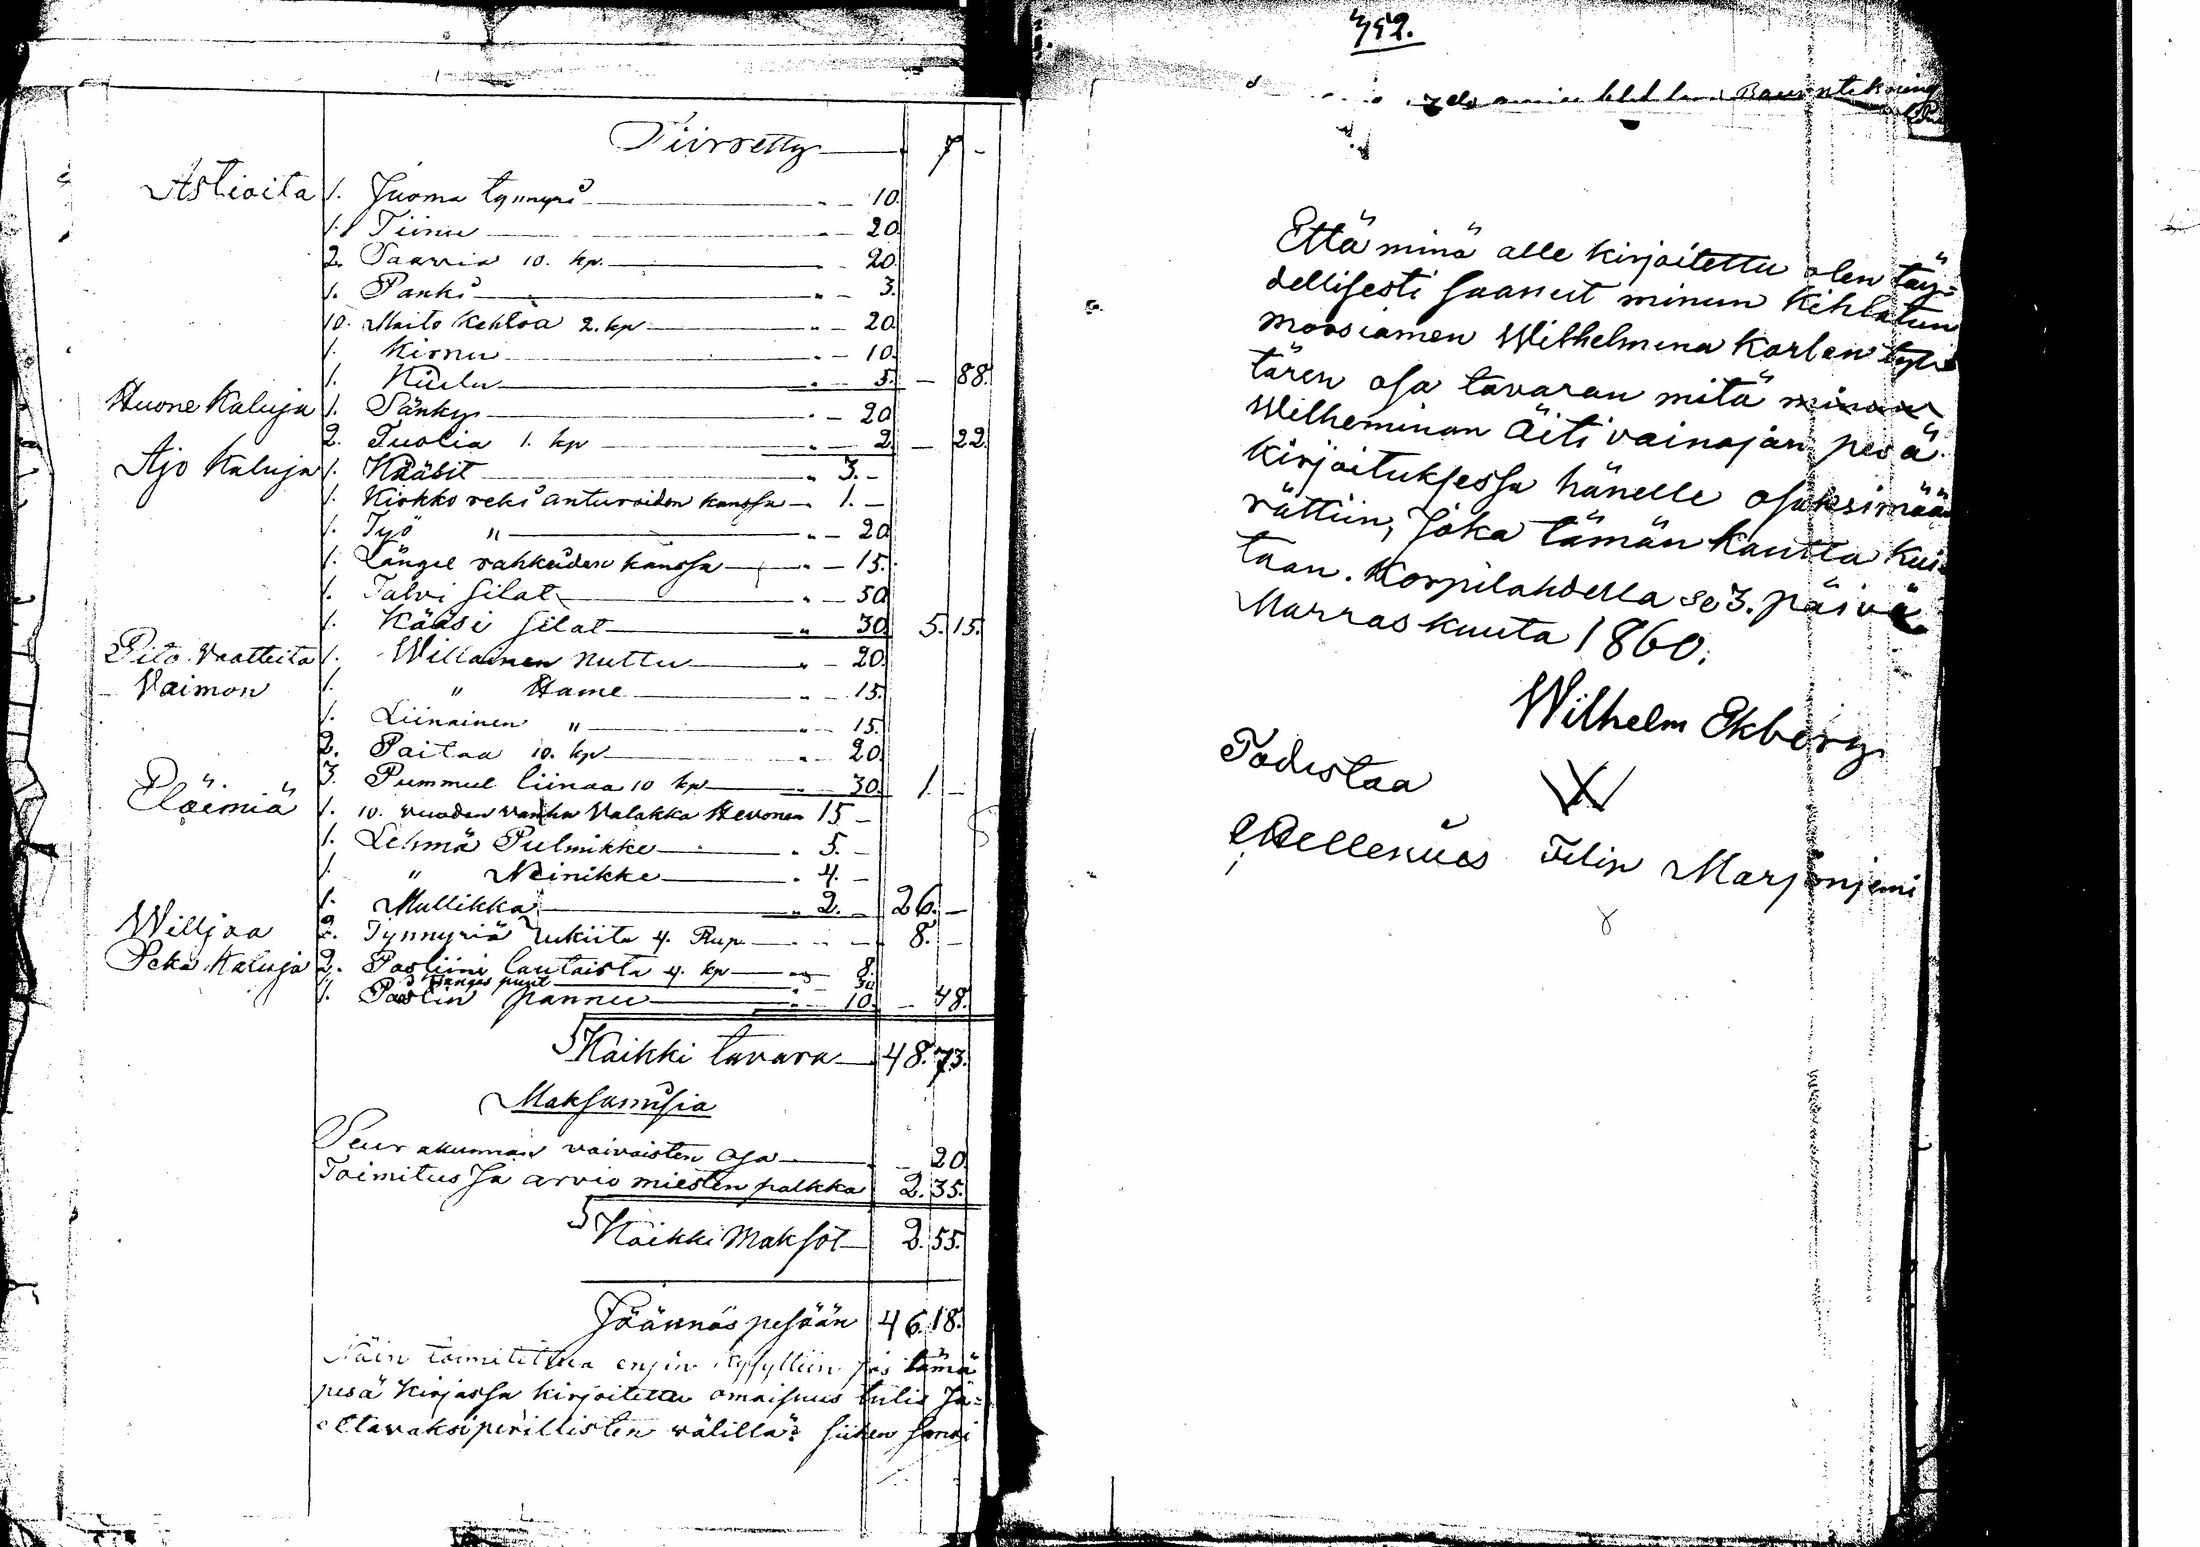 Siirretty 7 -
Astioita 1. Juoma tynnyri " - 10.
1. Tiinu " - 20.
2. Saavia 10. kp. " - 20.
1. Panki " - 3.
10. Maito kehloa 2. kp " - 20.
1. Kirnu " - 10.
1. Kiulu " - 5. - 88.
Huone Kaluja 1. Sänky " - 20
2. Tuolia 1. kp " - 2. - 22.
Ajo Kaluja 1. Kääsit " 3. -
1. Kirkko reki anturoiden kanssa - 1. -
1. Työ " " - 20
1. Länget rahkeiden kanssa " - 15.
1. Talvi silat " - 50
1. Kääsi silat " 30. 5. 15.
Pito Vaatteita 1. Willainen nuttu " - 20.
Vaimon 1. " Hame " - 15.
1. Liinainen " " - 15.
2. Paitaa 10. kp " - 20.
3. Pummul liinaa 10 kp " 30. 1. -
Eläimiä 1. 10. vuoden vanha Valakka Hevonen 15 -
1. Lehmä Pulmikki " 5. -
1. " Neinikke " 4. -
1. Mullikka " 2. - 26. -
Williaa 2. Tynnyriä rukiita 4. Rup. - 8. -
Seka Kaluja 2. Posliini lautaista 4. kp - " 8.
3 Kangas puut 30
1. Poslin pannu " 10. - 48.
Kaikki tavara 48. 73.
Maksamisia
Seurakunnan vaivaisten osa - 20
Toimitus Ja arvio miesten palkka 2. 35.
Kaikki Maksot 2. 55.
Jäännös pesään 46. 18.
Näin toimitettua ensin kysyttiin jos tämä
pesä kirjassa kirjoitettu omaisuus tulis Ja=
ettavaksi perillisten välillä? siihen sanoi
452.
Että minä alle kirjoitettu olen täy=
dellisesti saanut minun Kihlatun
morsiamen Wilhelmina Karlen tyt
tären osa tavaran mitä minun
Wilheminan Äiti vainajan pesä
kirjoituksessa hänelle osaksi mää
rättiin, Joka tämän kautta kui
taan. Korpilahdella se 3. päivä
Marraskuuta 1860.
Wilhelm Ekberg
Todistaa
Mellenius Filip Marjoniemi